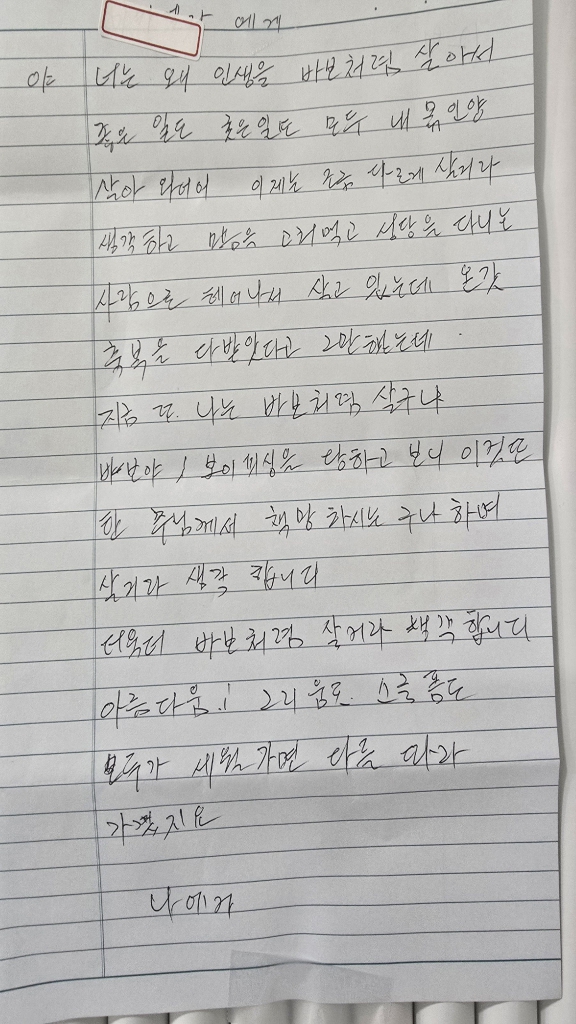 에게
야 너는 왜 인생을 바보처럼 살아서
좋은 일도 궂은일도 모두 내 몫인양
살아 와더이 이제는 조금 다르게 살거라
생각하고 마음을 고쳐먹고 성당을 다니는
사람으로 태어나서 살고 있는데 온갖
축복을 다받앗다고 그만했는데
지금 또 나는 바보처럼 살구나
바보야 ! 보이피싱을 당하고 보니 이것또
한 주님께서 책망 하시는 구나 하며
살거라 생각 합니다
더욱더 바보처럼 살거라 생각합니다
아름다움.i 그리움도 스글픔도
모두가 세월가면 다름 따라
가겠지요
나에게